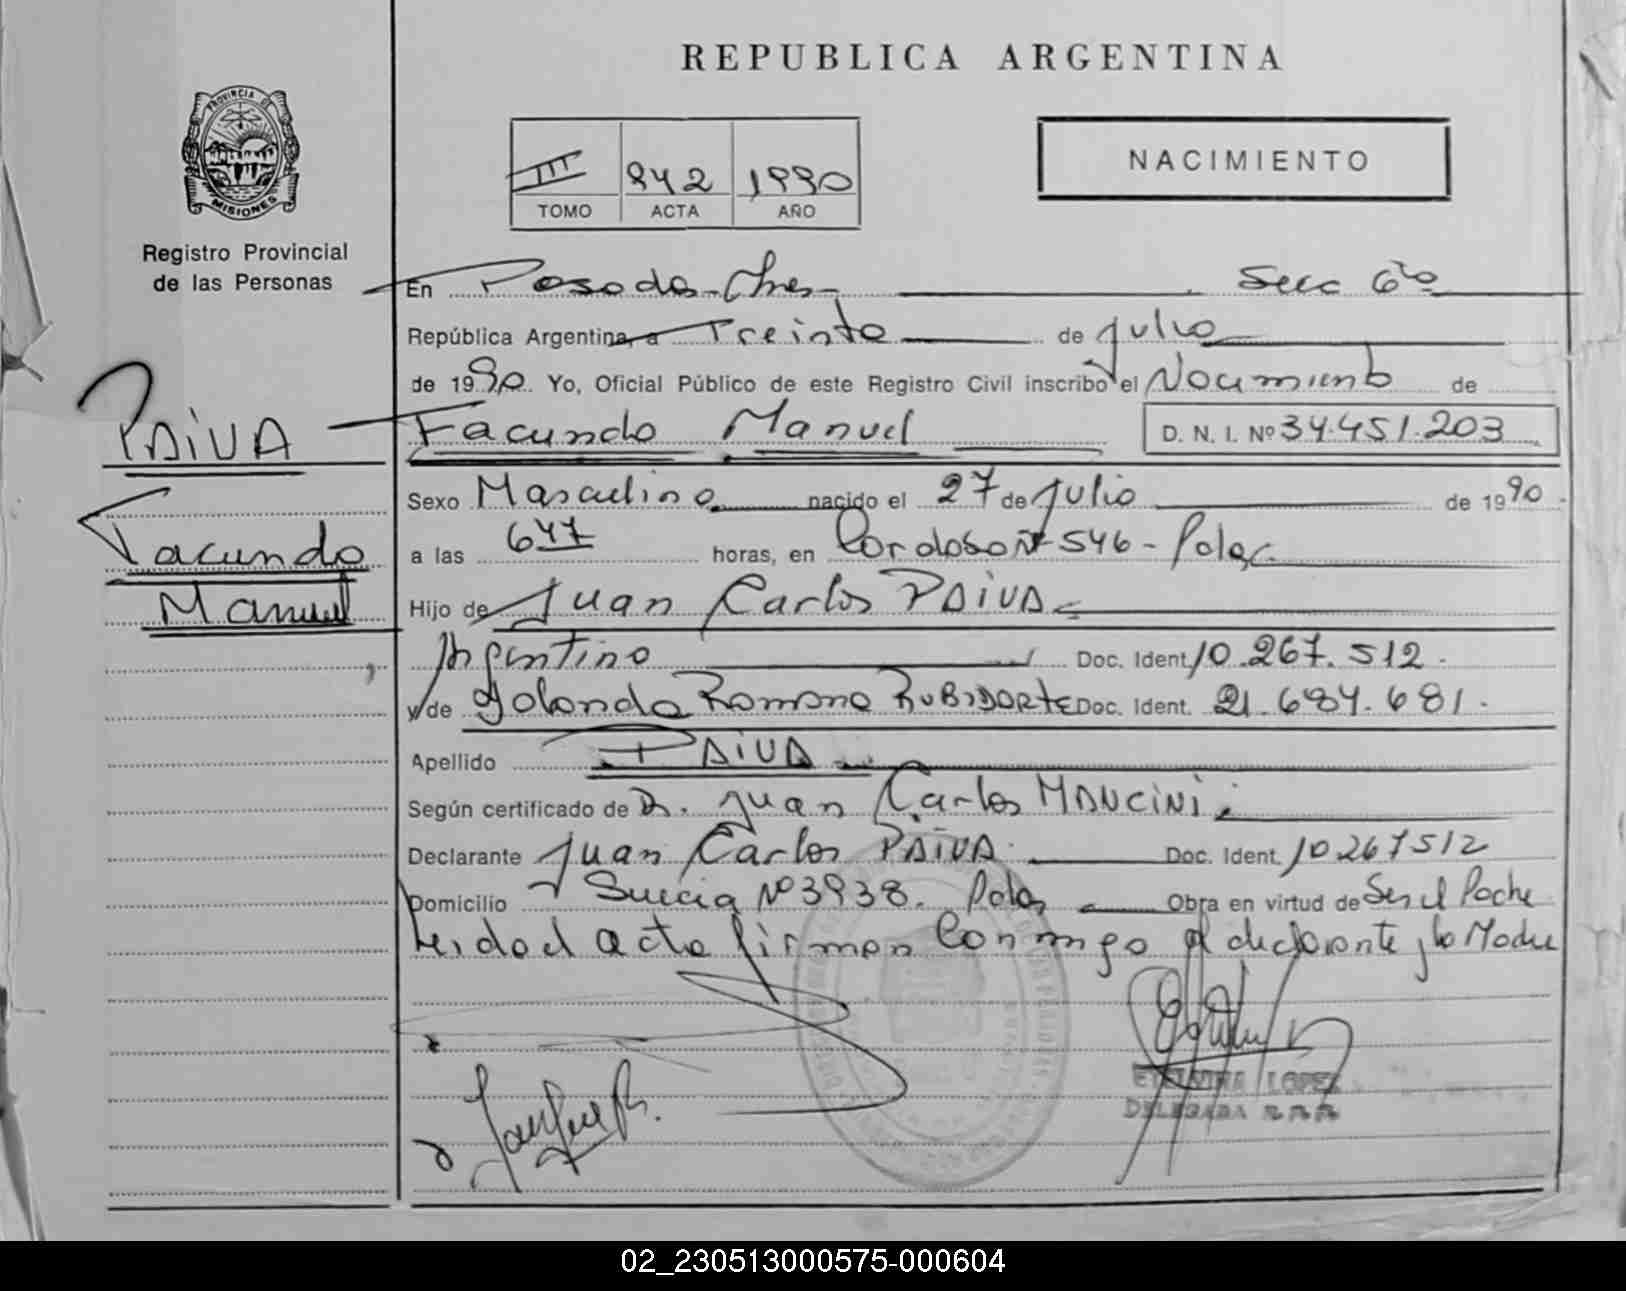 REPUBLICA ARGENTINA
PROVINCIA DE
MISIONES
Registro Provincial
de las Personas
III 842 1990
TOMO ACTA AÑO
NACIMIENTO
En Posadas - Mnes - Secc 6ta
República Argentina, a Treinta de Julio
de 1990. Yo, Oficial Público de este Registro Civil inscribo el Nacimiento de
PAIVA
Facundo Manuel D. N. I. Nº 34.451.203
Sexo Masculino nacido el 27 de Julio de 1990.
Facundo
a las 6 horas, en Nº 546 - Pdas.
Manuel
Hijo de Juan Carlos PAIVA
Argentino Doc. Ident. 10.267.512.
y de Yolanda Romona Doc. Ident. 21.684.681.
Apellido PAIVA
Según certificado de Dr. Juan Carlos MANCINI.
Declarante Juan Carlos PAIVA. Doc. Ident. 10267512
Domicilio Suecia Nº 3938. Pdas Obra en virtud de Ser el Padre
Leida el acta firman conmigo el declarante y la Madre
LOPEZ
DELEGADA
02_230513000575-000604